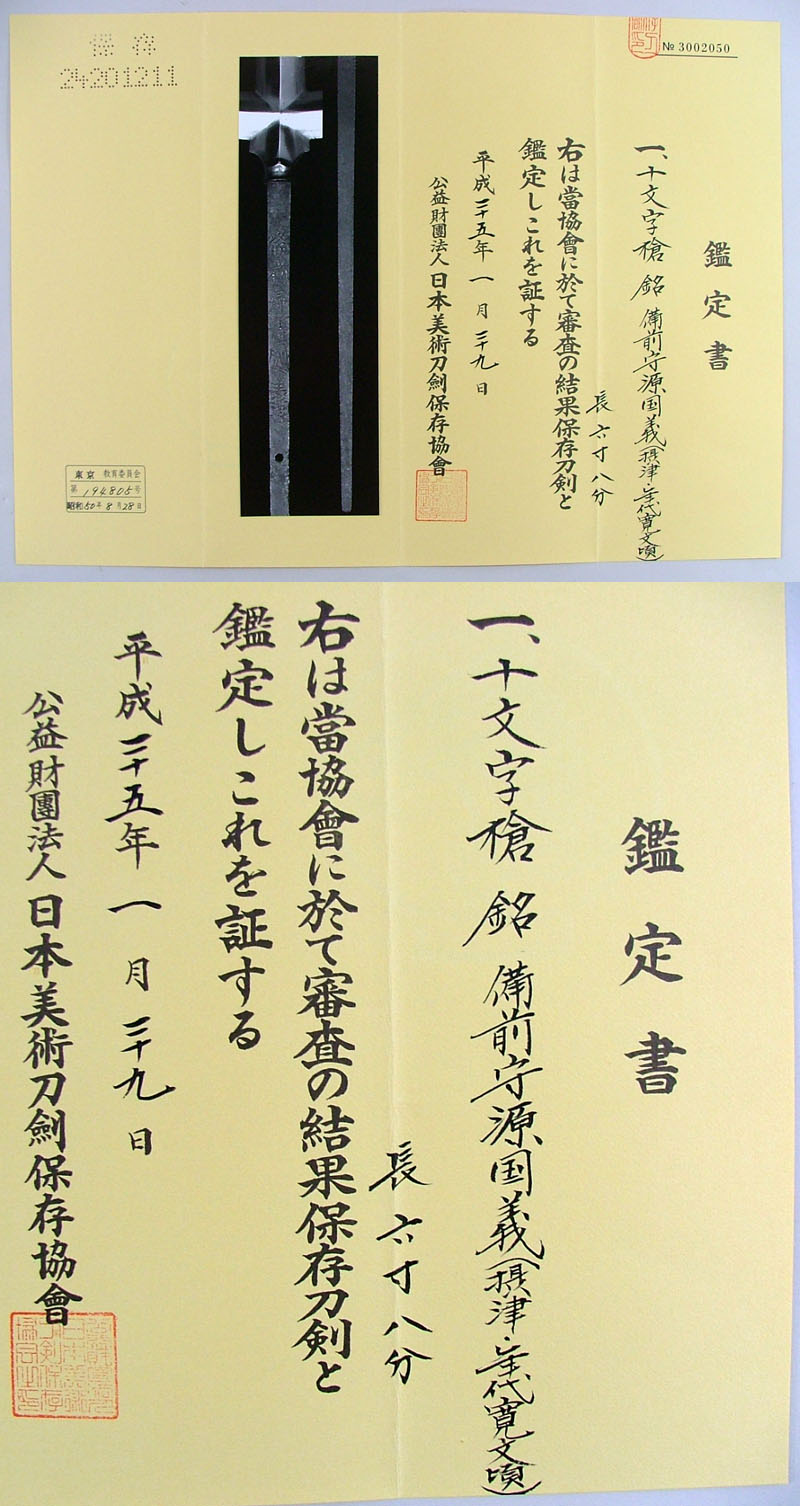 № 3002050
鑑定書
一、十文字槍 銘 備前守源国義(摂津・年代寛文頃)
長 六寸八分
右は當協會に於て審査の結果保存刀剣と
鑑定しこれを証する
平成二十五年 一月 二十九日
公益財團法人 日本美術刀劍保存協會
保存
24201211
東京 教育委員会
第 194805 号
昭和50年8月28日
鑑定書
一、十文字槍 銘 備前守源国義(摂津・年代寛文頃)
長 六寸八分
右は當協會に於て審査の結果保存刀剣と
鑑定しこれを証する
平成二十五年 一月 二十九日
公益財團法人 日本美術刀劍保存協會